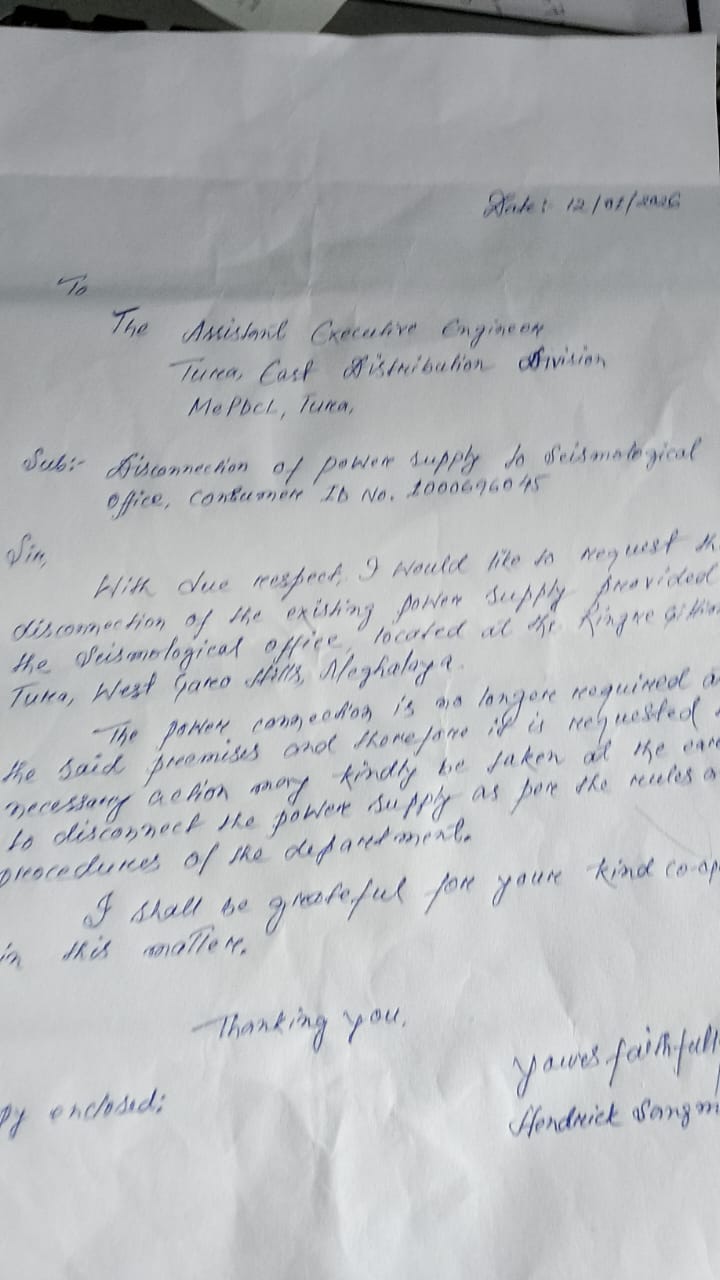 Date: 12/01/2026
To
The Assistant Executive Engineer
Tura, East Distribution Division
MePDCL, Tura,
Sub:- Disconnection of power supply to Seismological
office, Consumer ID No. 1000696045
Sir,
With due respect, I would like to request th
disconnection of the existing power supply provided
the Seismological office, located at the Ringre
Tura, West Garo Hills, Meghalaya.
The power connection is no longer required a
the said premises and therefore it is requested
necessary action may kindly be taken at the ear
to disconnect the power supply as per the rules a
procedures of the department.
I shall be grateful for your kind co-op
in this matter.
Thanking you,
Yours faithfull
Hendrick Sangm
py enclosed: